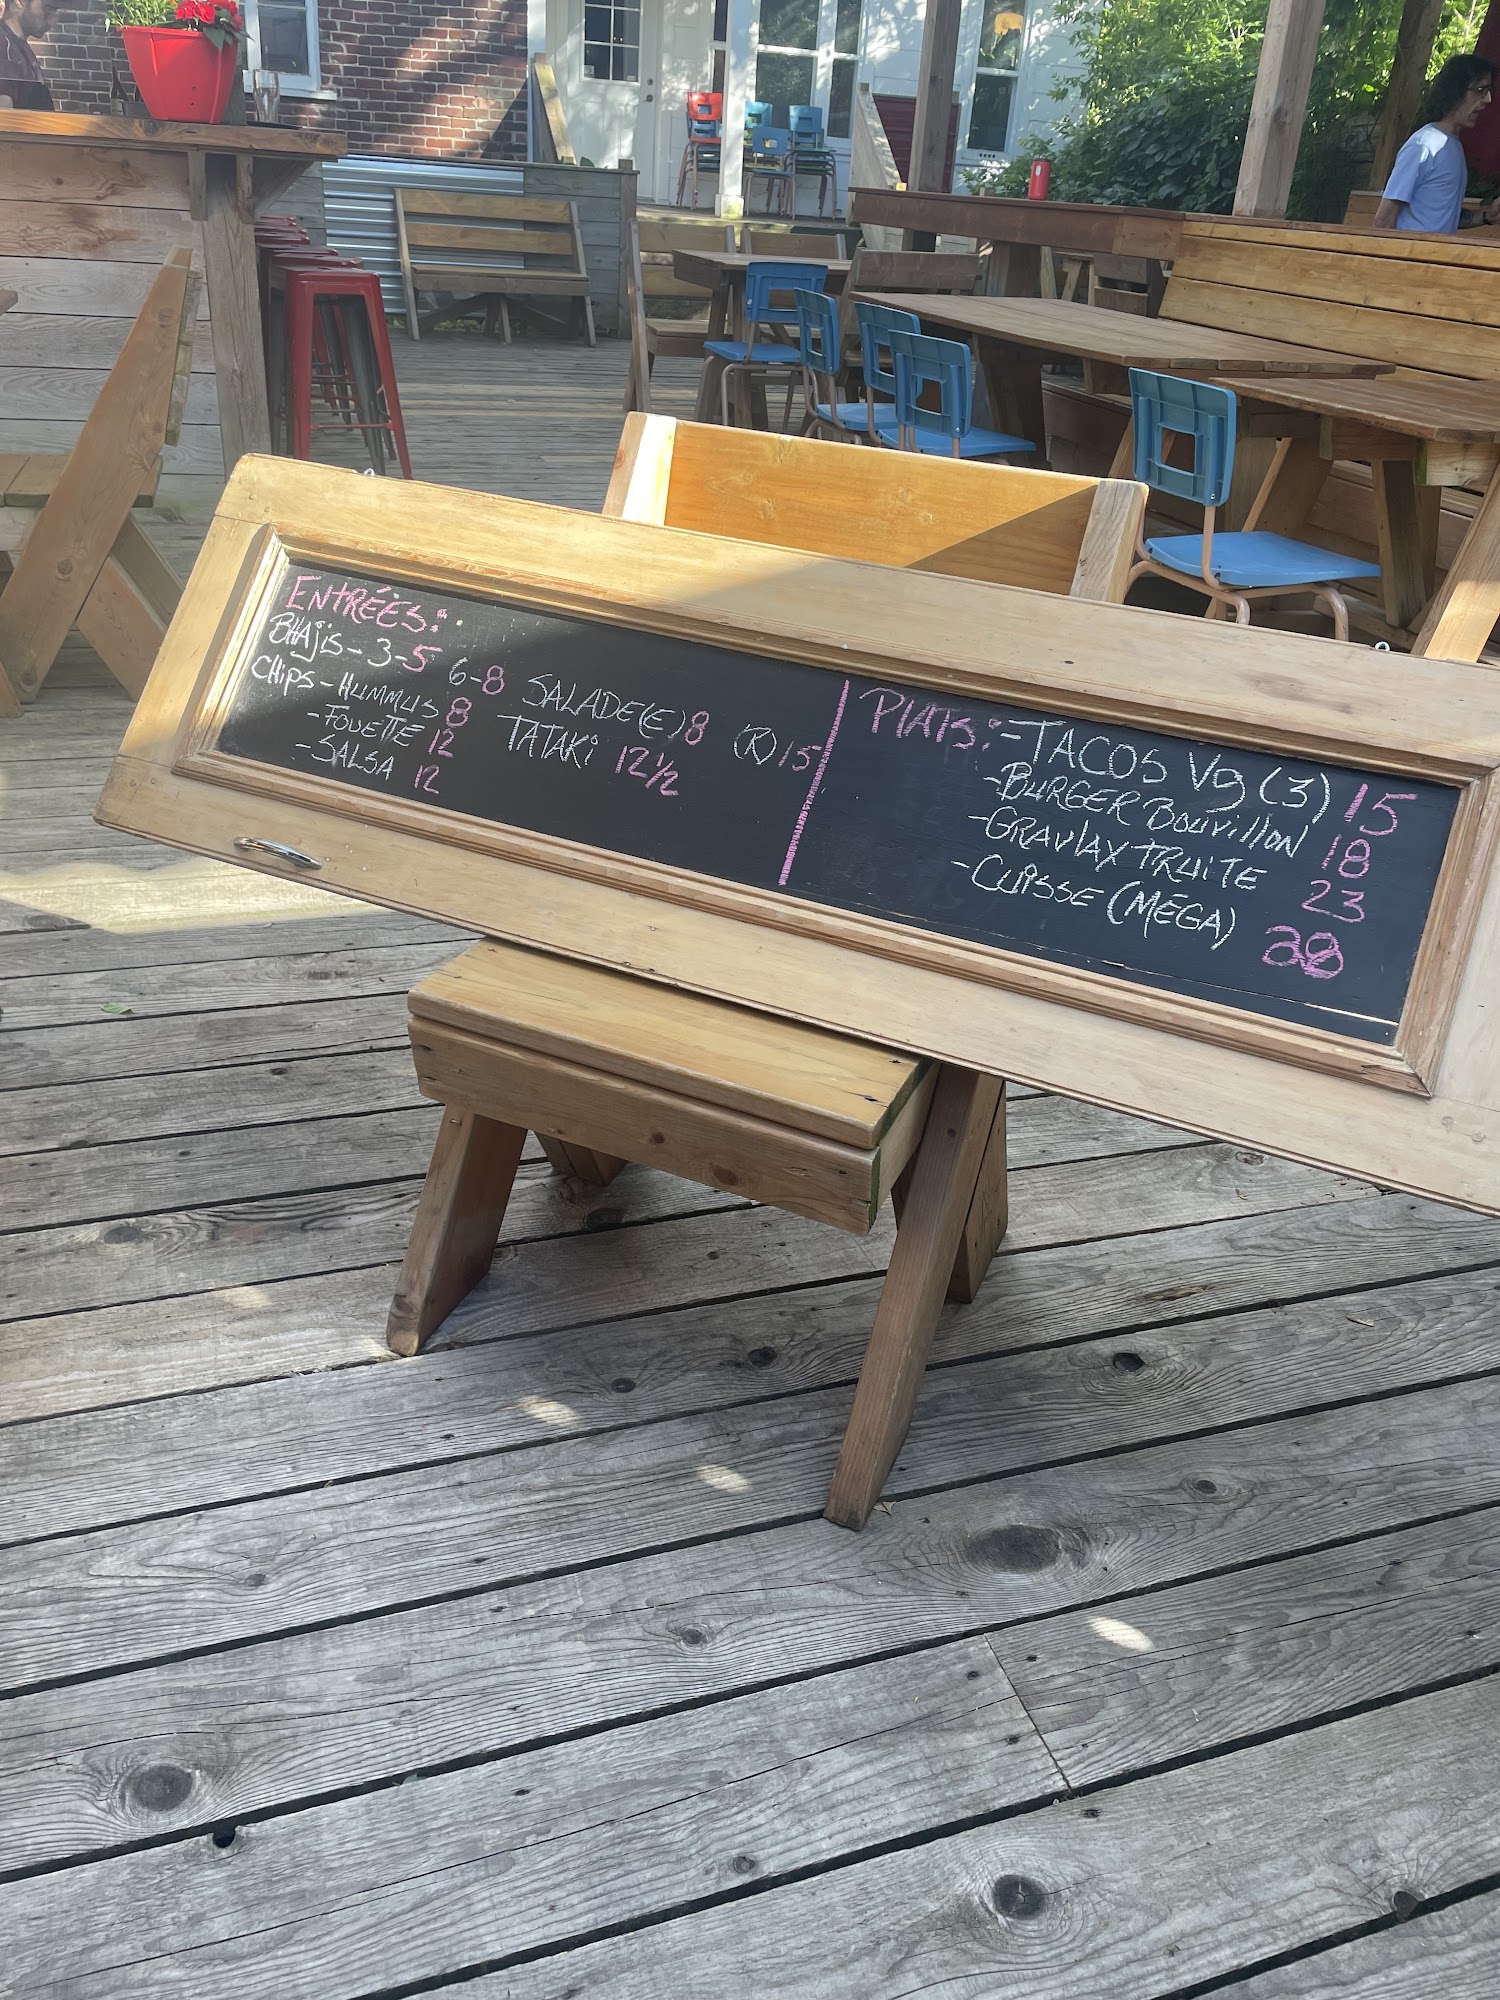 ENTRÉES:
BHAJIS - 3-5 6-8
CHIPS - HUMMUS 8
- FOUETTE 12
- SALSA 12
SALADE(E) 8 (R) 15
TATAKI 12 1/2
PLATS: - TACOS Vg (3) 15
- BURGER BOUVILLON 18
- GRAVLAX TRUITE 23
- CUISSE (MEGA) 28